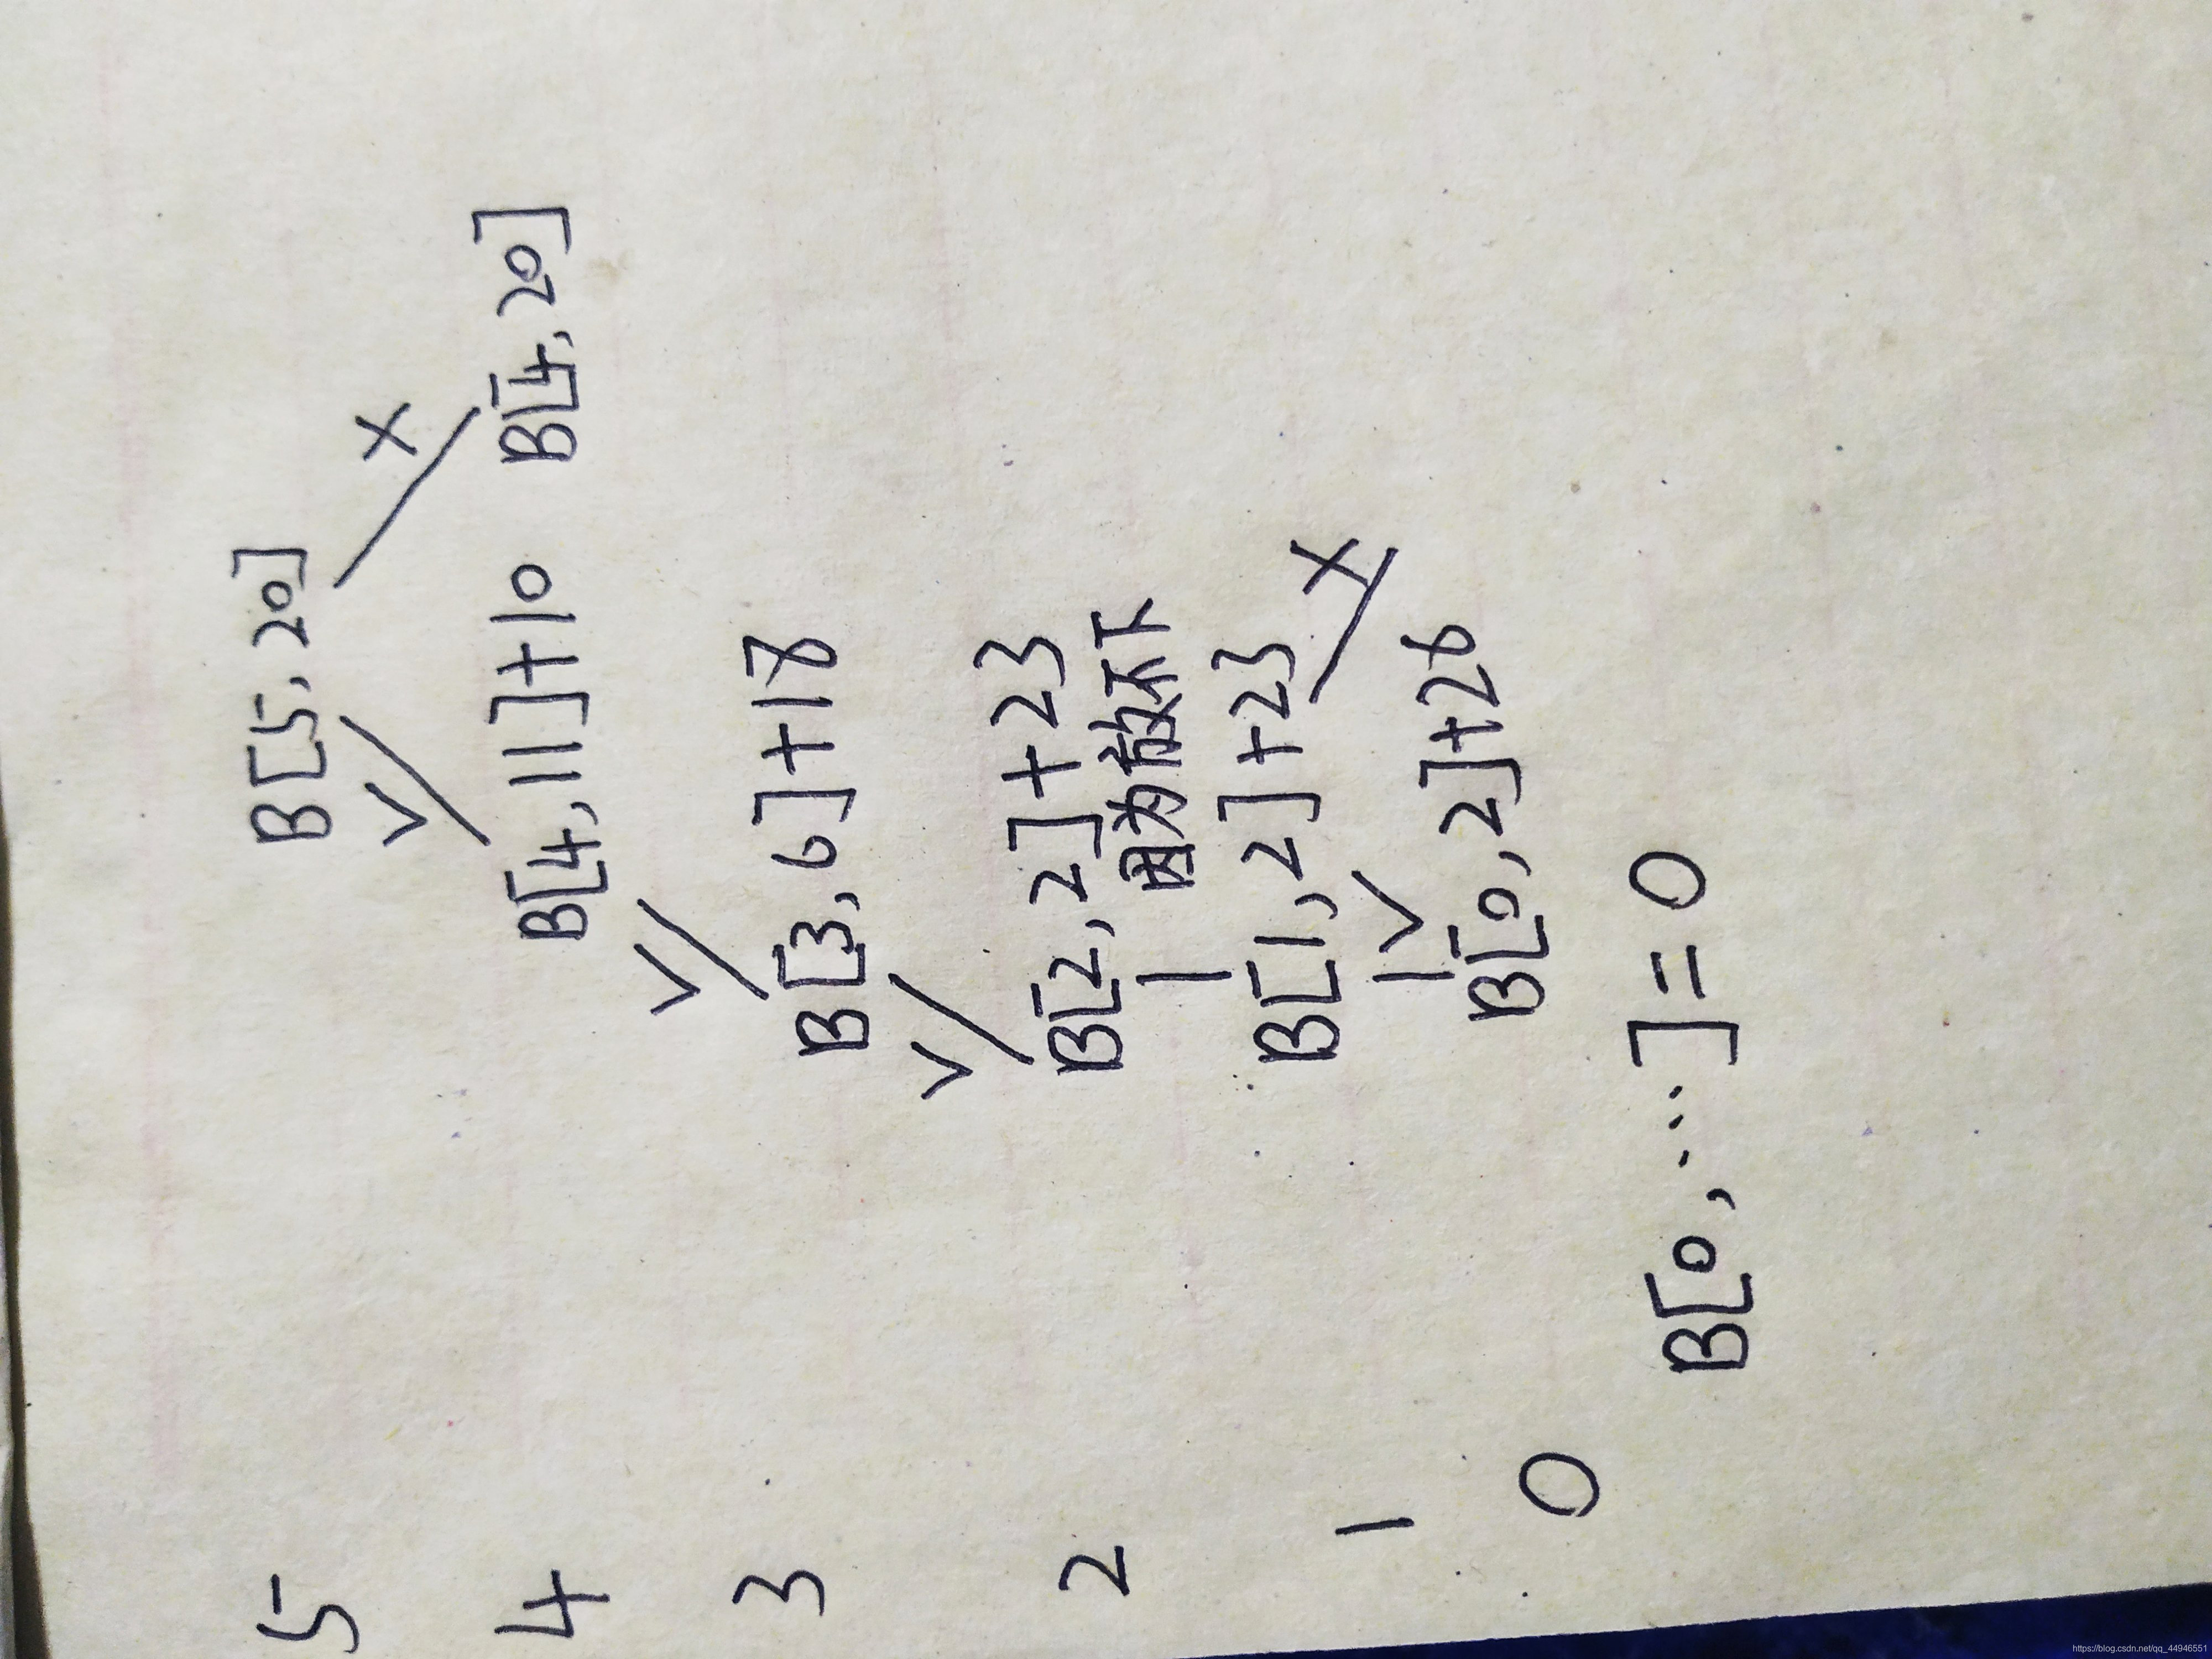 5 B[5,20]
√ X
4 B[4,11]+10 B[4,20]
√
3 B[3,6]+18
√
2 B[2,2]+23
因为放不下
1 B[1,2]+23
√ X
0 B[0,2]+26
B[0,...]=0
https://blog.csdn.net/qq_44946551